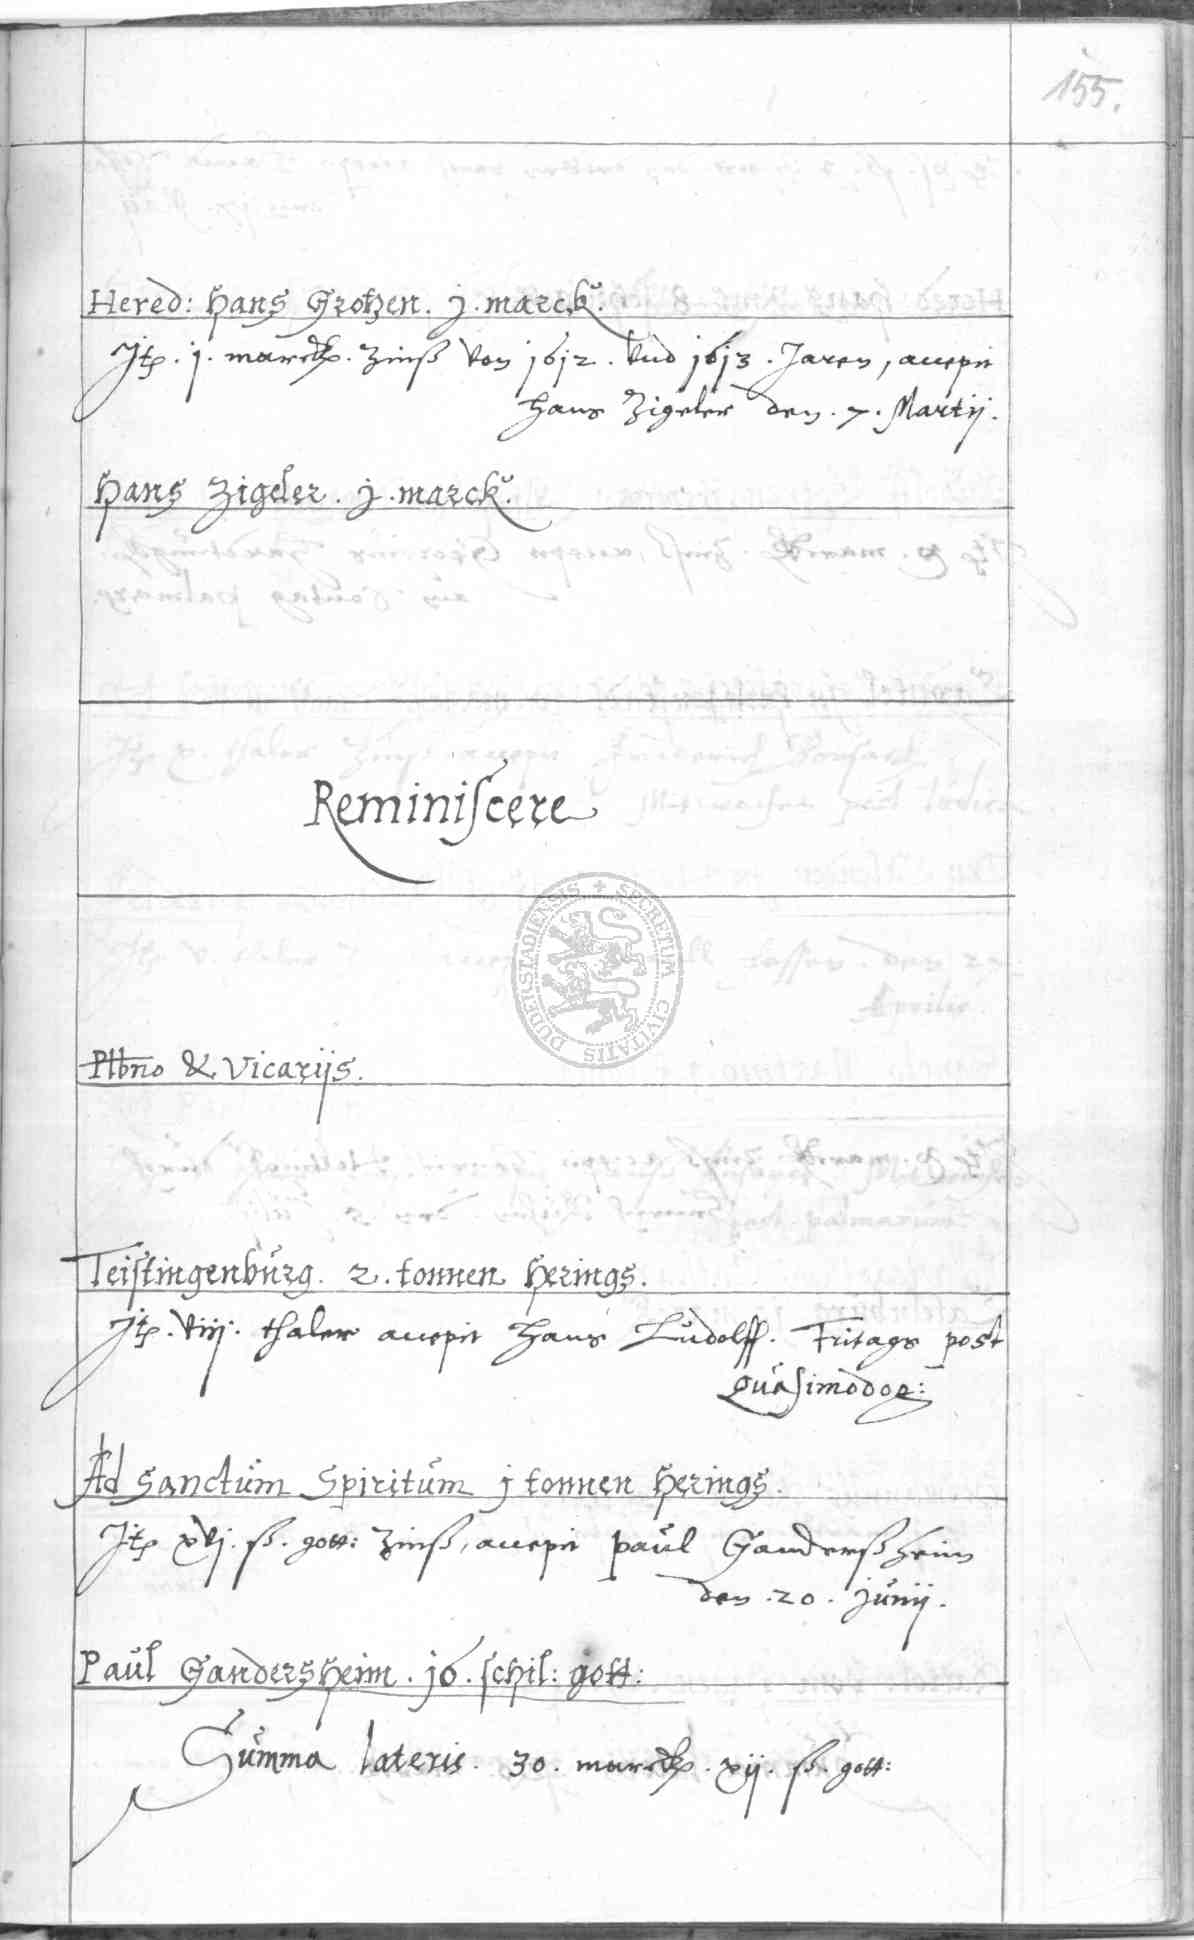 155.
Hered: Hans Grotzen. j. marck.
Jtp. j. marck. Zinß von 1612. vnd 1613. Jaren, accepit
Hans Zigeler den. 7. Martij.
Hans Zigeler. j. marck.
Reminiscere
DUDERSTADIENSIS + SECRETUM CIVITATIS
Plbno & vicarijs.
Teistingenburg. 2. tonnen Herings.
Jtp. viij. thaler accepit Hans Ludolff. Fritags post
Quasimodog:
Ad Sanctum Spiritum j tonnen Herings.
Jtp xvj. ß. gott: Zinß, accepit Paul Ganderßheim
den. 20. Junij.
Paul Gandersheim. 16. schil: gott:
Summa lateris. 30. marck. xij. ß. gott: